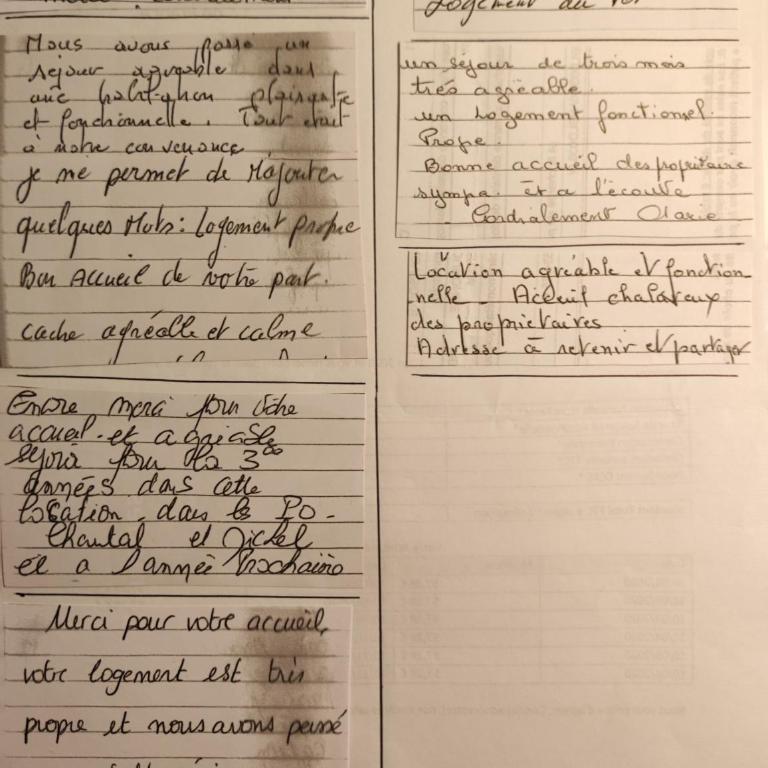 Nous avons passé un
séjour agréable dans
une habitation plaisante
et fonctionnelle. Tout était
à notre convenance
je me permet de Rajouter
quelques Mots: Logement propre
Bon Accueil de votre part.
cadre agréable et calme
Encore merci pour votre
accueil et agréable
séjour pour la 3
années dans cette
location dans le PO -
Chantal et Michel
et a l'année Prochaine
Merci pour votre accueil,
votre logement est très
propre et nous avons passé
Logement au
un séjour de trois mois
trés agréable.
un Logement fonctionnel.
Prope.
Bonne accueil des propriétaire
sympa. et a l'écoute
Cordialement Marie
Location agréable et fonction-
nelle - Acceuil chalereux
des propriétaires
Adresse à retenir et partager